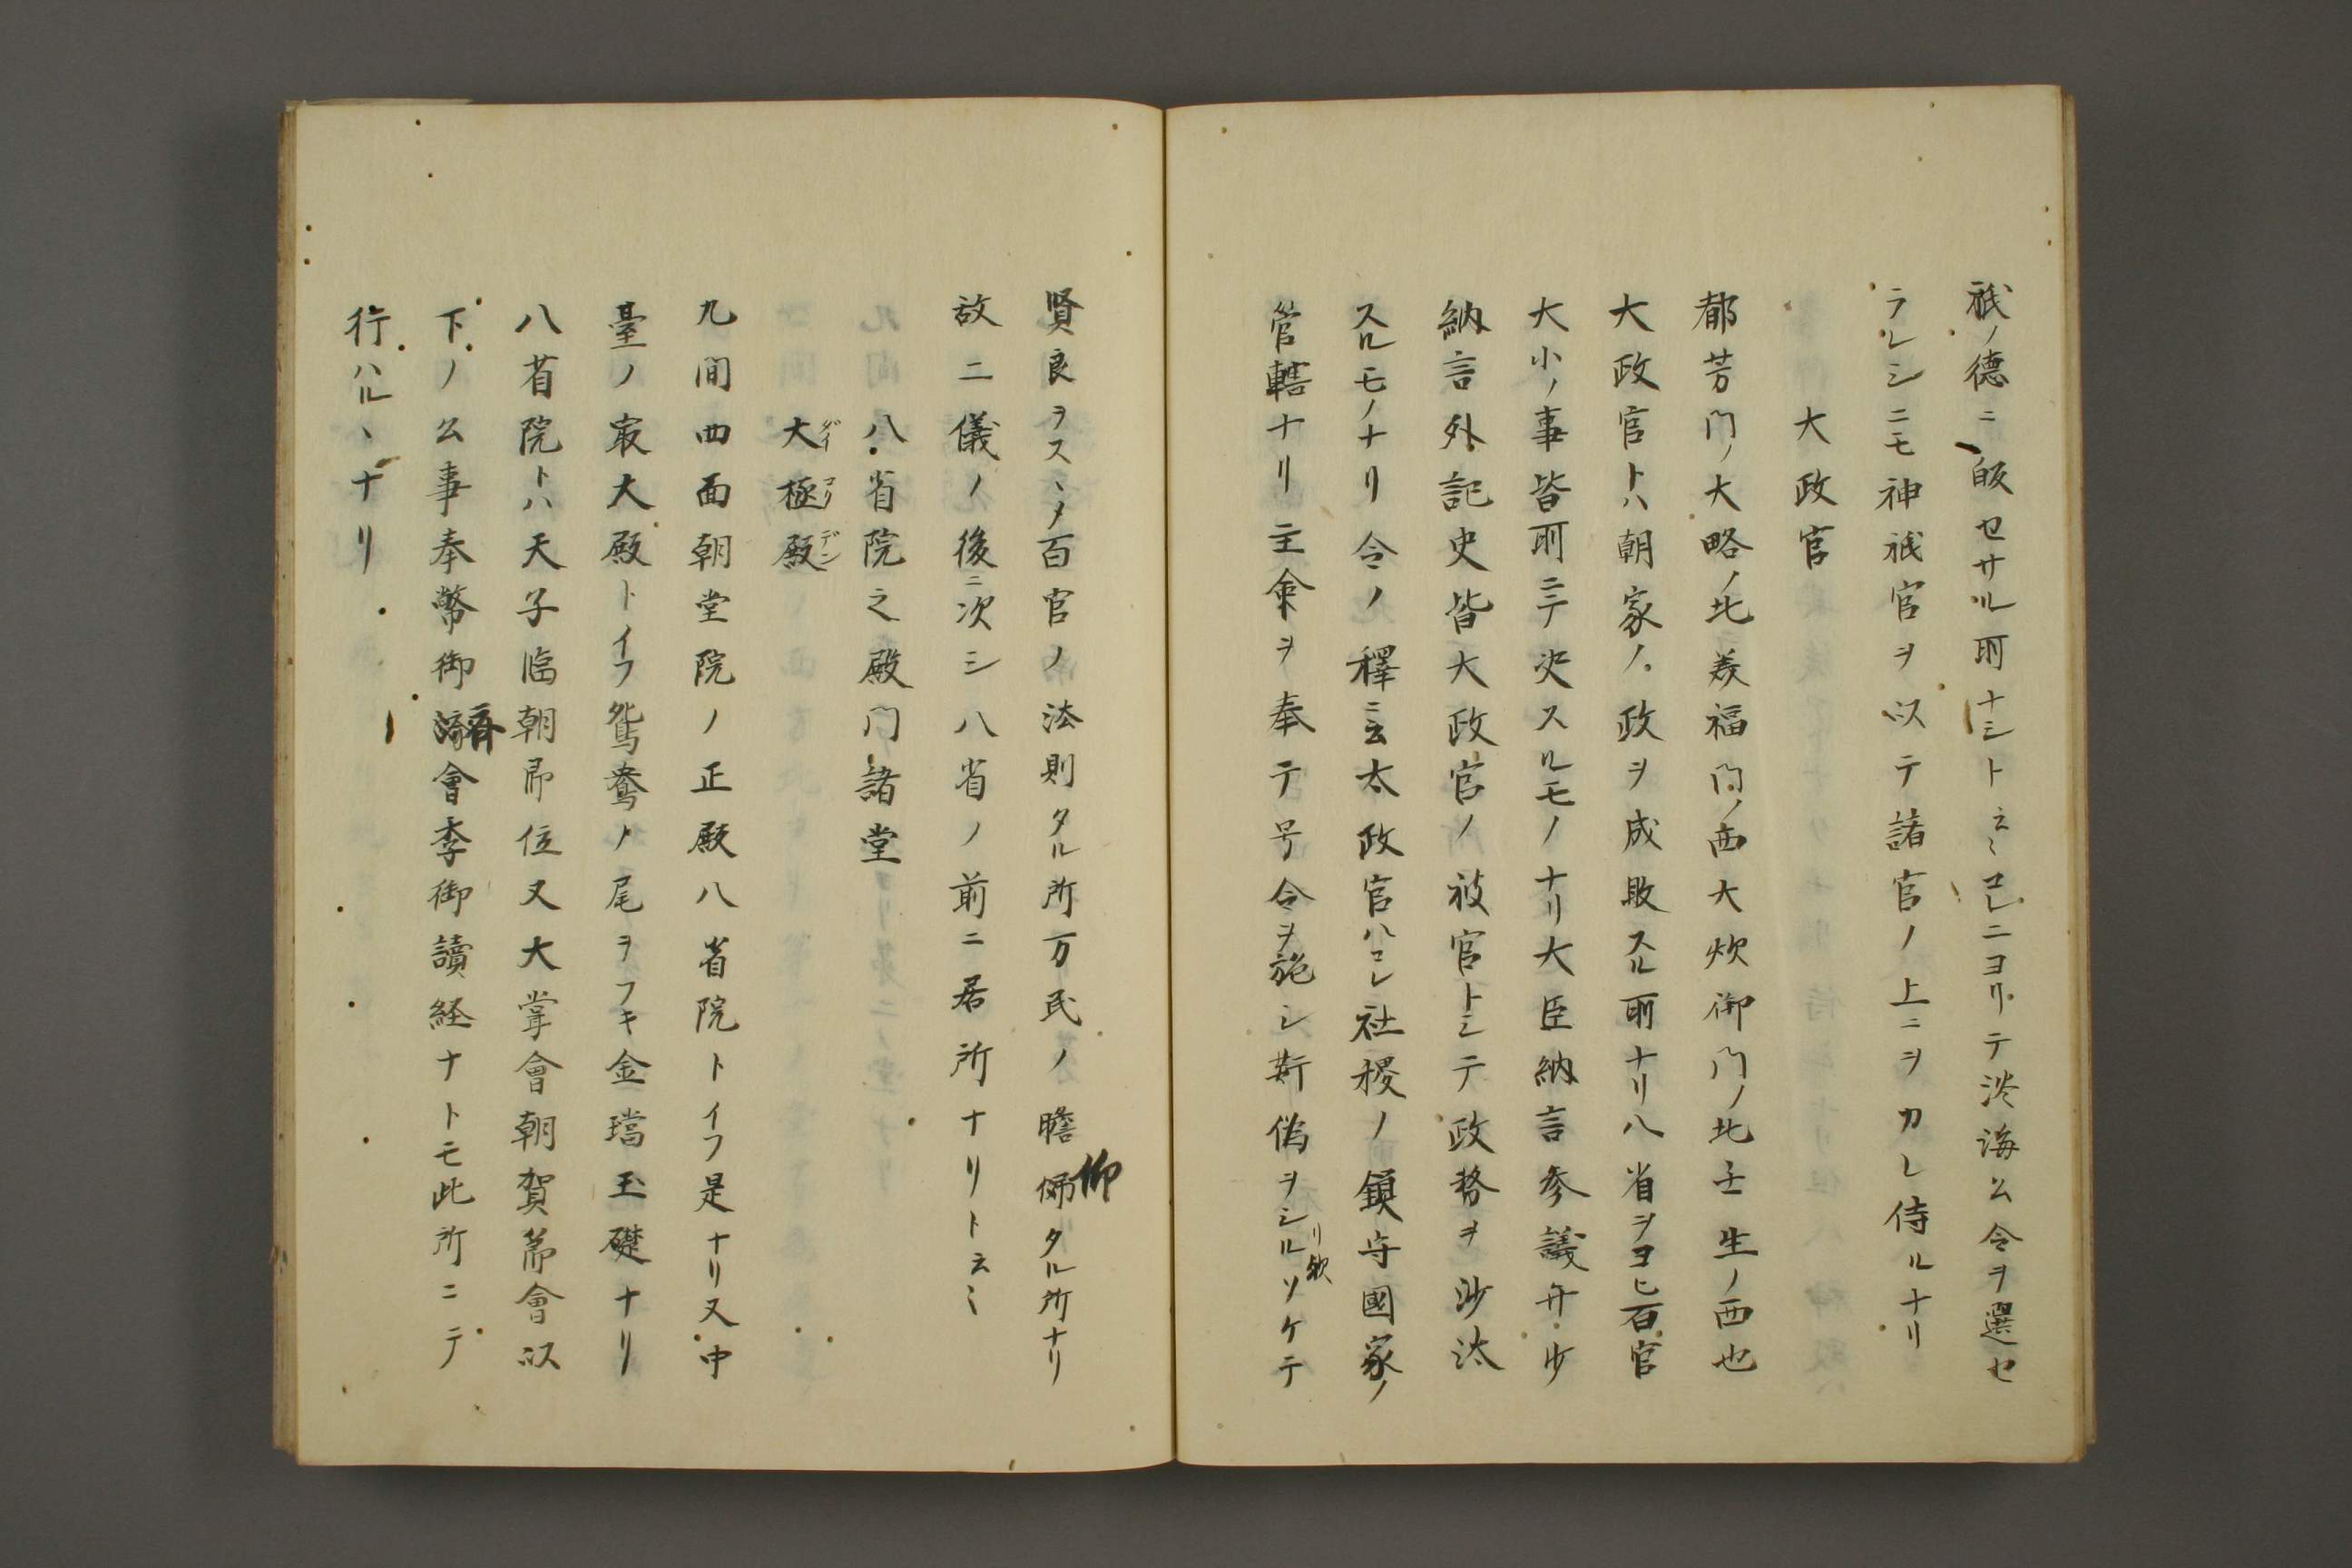 祇ノ德ニ皈セサル所ナシト云〻コレニヨリテ淡海公令ヲ選セ
ラレシニモ神祇官ヲ以テ諸官ノ上ニヲカレ侍ルナリ
大政官
都芳門ノ大略ノ北美福門ノ西大炊御門ノ北壬生ノ西也
大政官トハ朝家ノ政ヲ成敗スル所ナリ八省ヲヨヒ百官
大小ノ事皆所ニテ决スルモノナリ大臣納言参議弁少
納言外記史皆大政官ノ被官トシテ政務ヲ沙汰
スルモノナリ令ノ釋ニ云太政官ハコレ社稷ノ鎮守國家ノ
管轄ナリ主命ヲ奉テ号令ヲ施シ斯偽ヲシルソケテ
リ歟
賢良ヲスヽメ百官ノ法則タル所万民ノ瞻仰タル所ナリ
故二儀ノ後ニ次シ八省ノ前ニ居所ナリト云〻
八省院之殿門諸堂
大極殿
ダイコクデン
九間四面朝堂院ノ正殿八省院トイフ是ナリ又中
臺ノ㝡大殿トイフ鴛鴦ノ尾ヲフキ金璫玉礎ナリ
八省院トハ天子臨朝即位又大嘗會朝賀節會以
下ノ公事奉幣御齋會季御讀経ナトモ此所ニテ
行ハルヽナリ